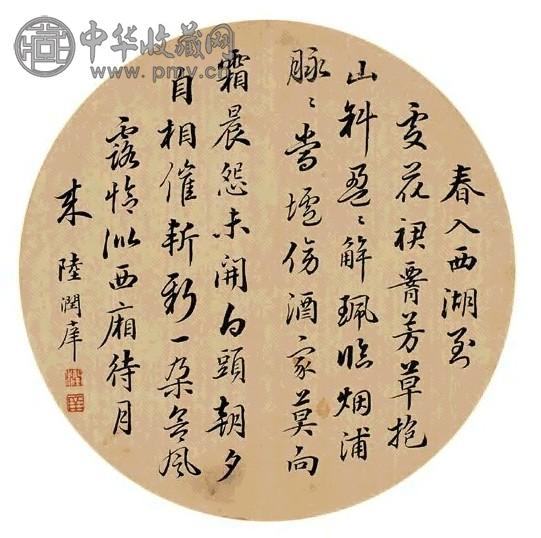 中华收藏网
www.pmv.cn
春入西湖到
處花裙腰芳草抱
山斜盈〻解珮臨烟浦
脉〻當壚傍酒家莫向
霜晨怨未開白頭朝夕
自相催斬新一朵含風
露恰似西廂待月
來 陸潤庠